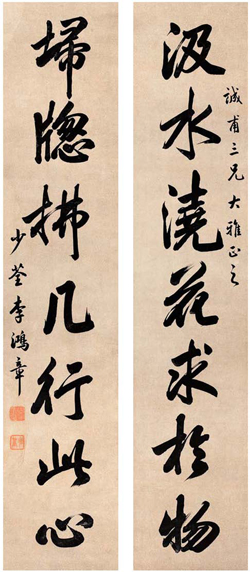 誠甫三兄大雅正之
汲水澆花求於物
埽牕拂几行此心
少荃李鴻章